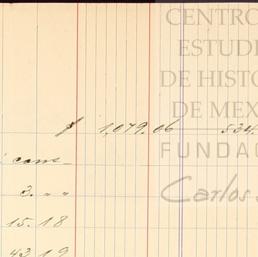 CENTRO
ESTUDI
DE HISTO
DE MEX
FUNDAC
Carlos
$ 1,079.06 534.
cans
3. " "
15.18
43.19